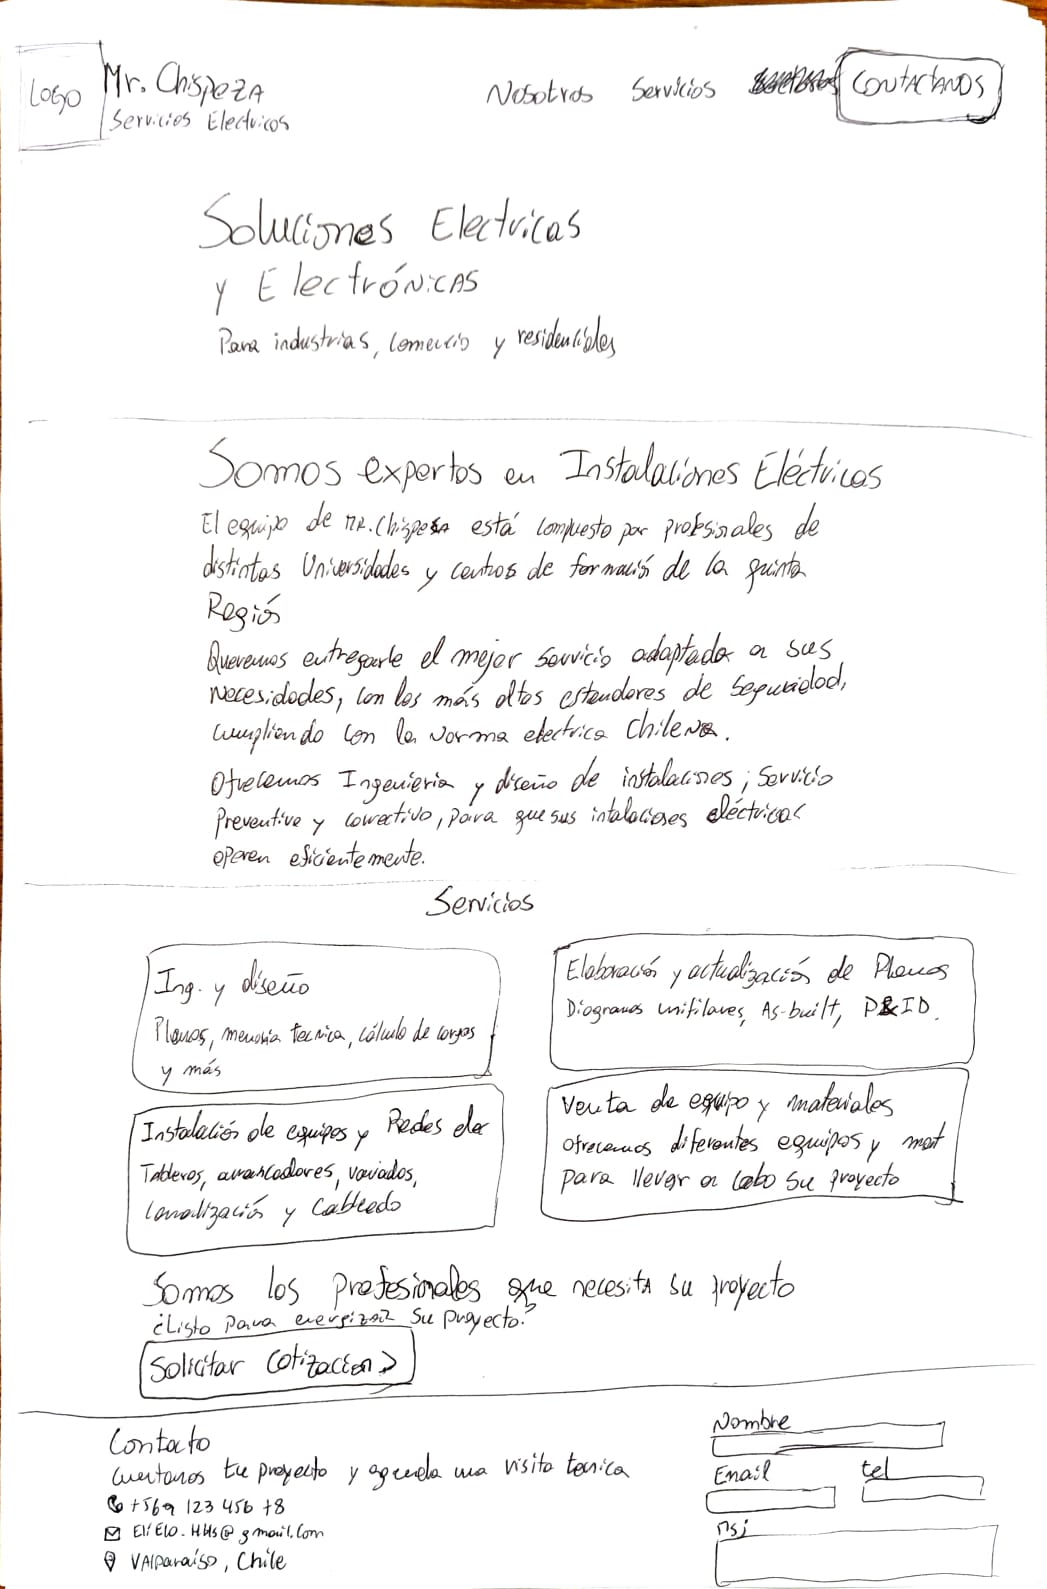 LOGO
Mr. Chispeza
Servicios Electricos
Nosotros Servicios CONTACTANOS
Soluciones Electricas
y Electrónicas
Para industrias, comercio y residenciales
Somos expertos en Instalaciones Eléctricas
El equipo de MR. Chispeza está compuesto por profesionales de
distintas Universidades y centros de formación de la quinta
Región
Queremos entregarle el mejor servicio adaptado a sus
necesidades, con los más altos estandares de seguridad,
cumpliendo con la norma electrica Chilena.
Ofrecemos Ingenieria y diseño de instalaciones, servicio
Preventivo y correctivo, para que sus intalaciones eléctricas
operen eficientemente.
Servicios
Ing. y diseño
Planos, memoria tecnica, cálculo de cargas
y más
Elaboración y actualización de Planos
Diagramas unifilares, As-built, P&ID.
Instalación de equipos y Redes elec
Tableros, arrancadores, variados,
canalización y Cableado
Venta de equipo y materiales
ofrecemos diferentes equipos y mat
para llevar a cabo su proyecto
Somos los profesionales que necesita su proyecto
¿Listo para energizar su proyecto?
Solicitar Cotizacion >
Contacto
Cuentanos tu proyecto y agenda una visita tecnica
+569 123 456 78
EliElo.HHs@gmail.com
VAlparaíso, Chile
Nombre
Email tel
Msj